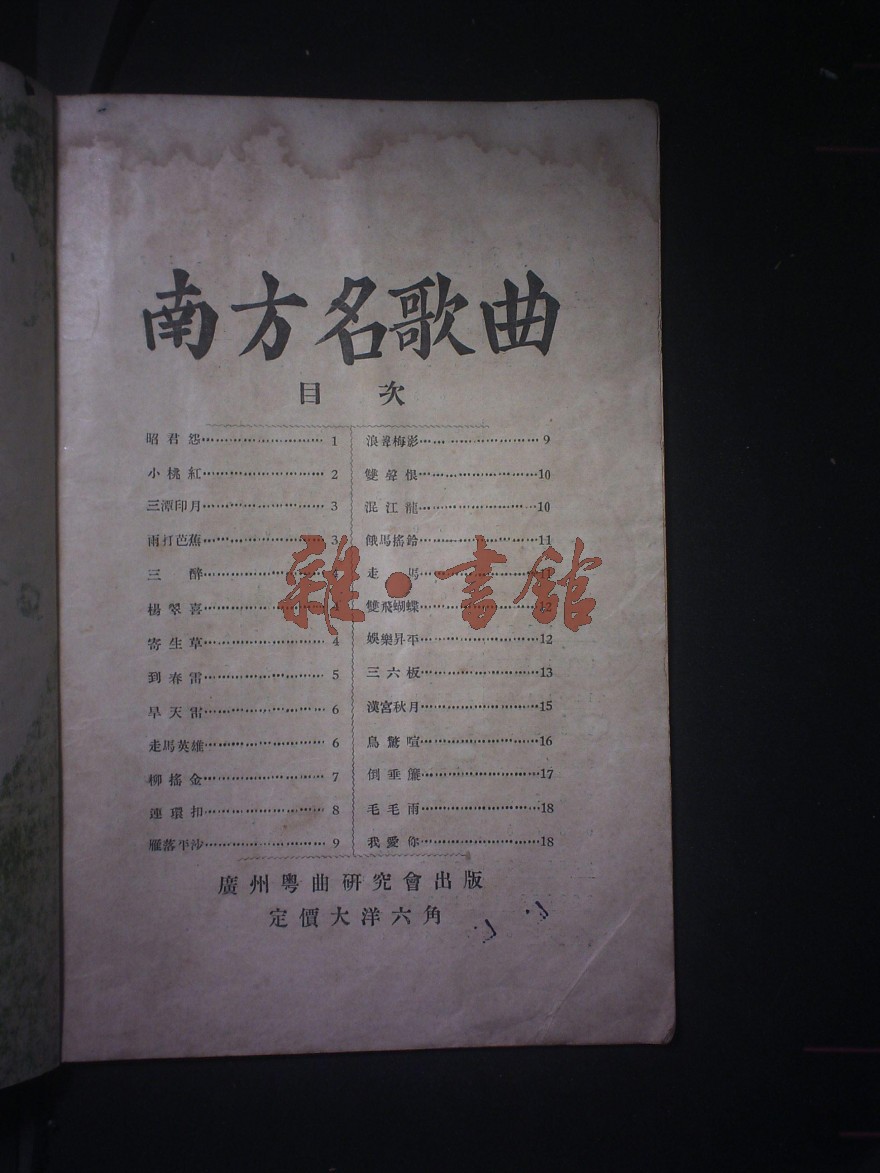 南方名歌曲
目次
昭君怨 1
小桃紅 2
三潭印月 3
雨打芭蕉 3
三醉
楊翠喜
寄生草 4
到春雷 5
旱天雷 6
走馬英雄 6
柳搖金 7
連環扣 8
雁落平沙 9
浪聲梅影 9
雙聲恨 10
混江龍 10
餓馬搖鈴 11
走馬
雙飛蝴蝶 12
娛樂昇平 12
三六板 13
漢宮秋月 15
鳥驚喧 16
倒垂簾 17
毛毛雨 18
我愛你 18
廣州粵曲研究會出版
定價大洋六角
雜·書館